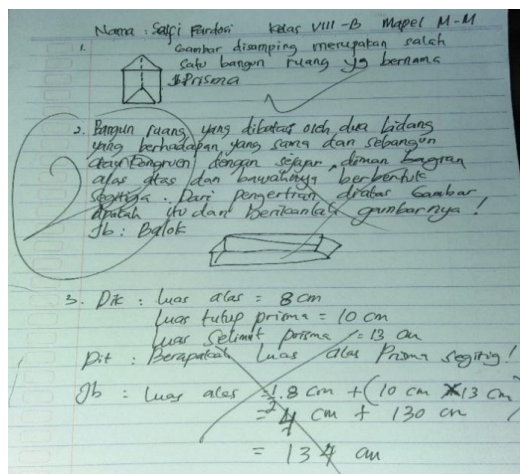 Nama : Salfi Fardosi Kelas VIII-B Mapel M-M
1. Gambar disamping merupakan salah
satu bangun ruang yg bernama
Jb Prisma
2. Bangun ruang yang dibatas oleh dua bidang
yang berhadapan yang sama dan sebangun
atau kongruen dengan sejajar, diman bagian
alas atas dan bawahnya berbentuk
segitiga. Dari pengertian diatas Gambar
apakah itu dan berikanlah gambarnya!
Jb : Balok
2
3. Dik : Luas alas = 8 cm
Luas tutup prisma = 10 cm
Luas Selimut prisma = 13 cm
Dit : Berapakah Luas alas Prisma segitig!
Jb : Luas alas = 1/2 . 8 cm + (10 cm x 13 cm)
= 4 cm + 130 cm
= 134 cm